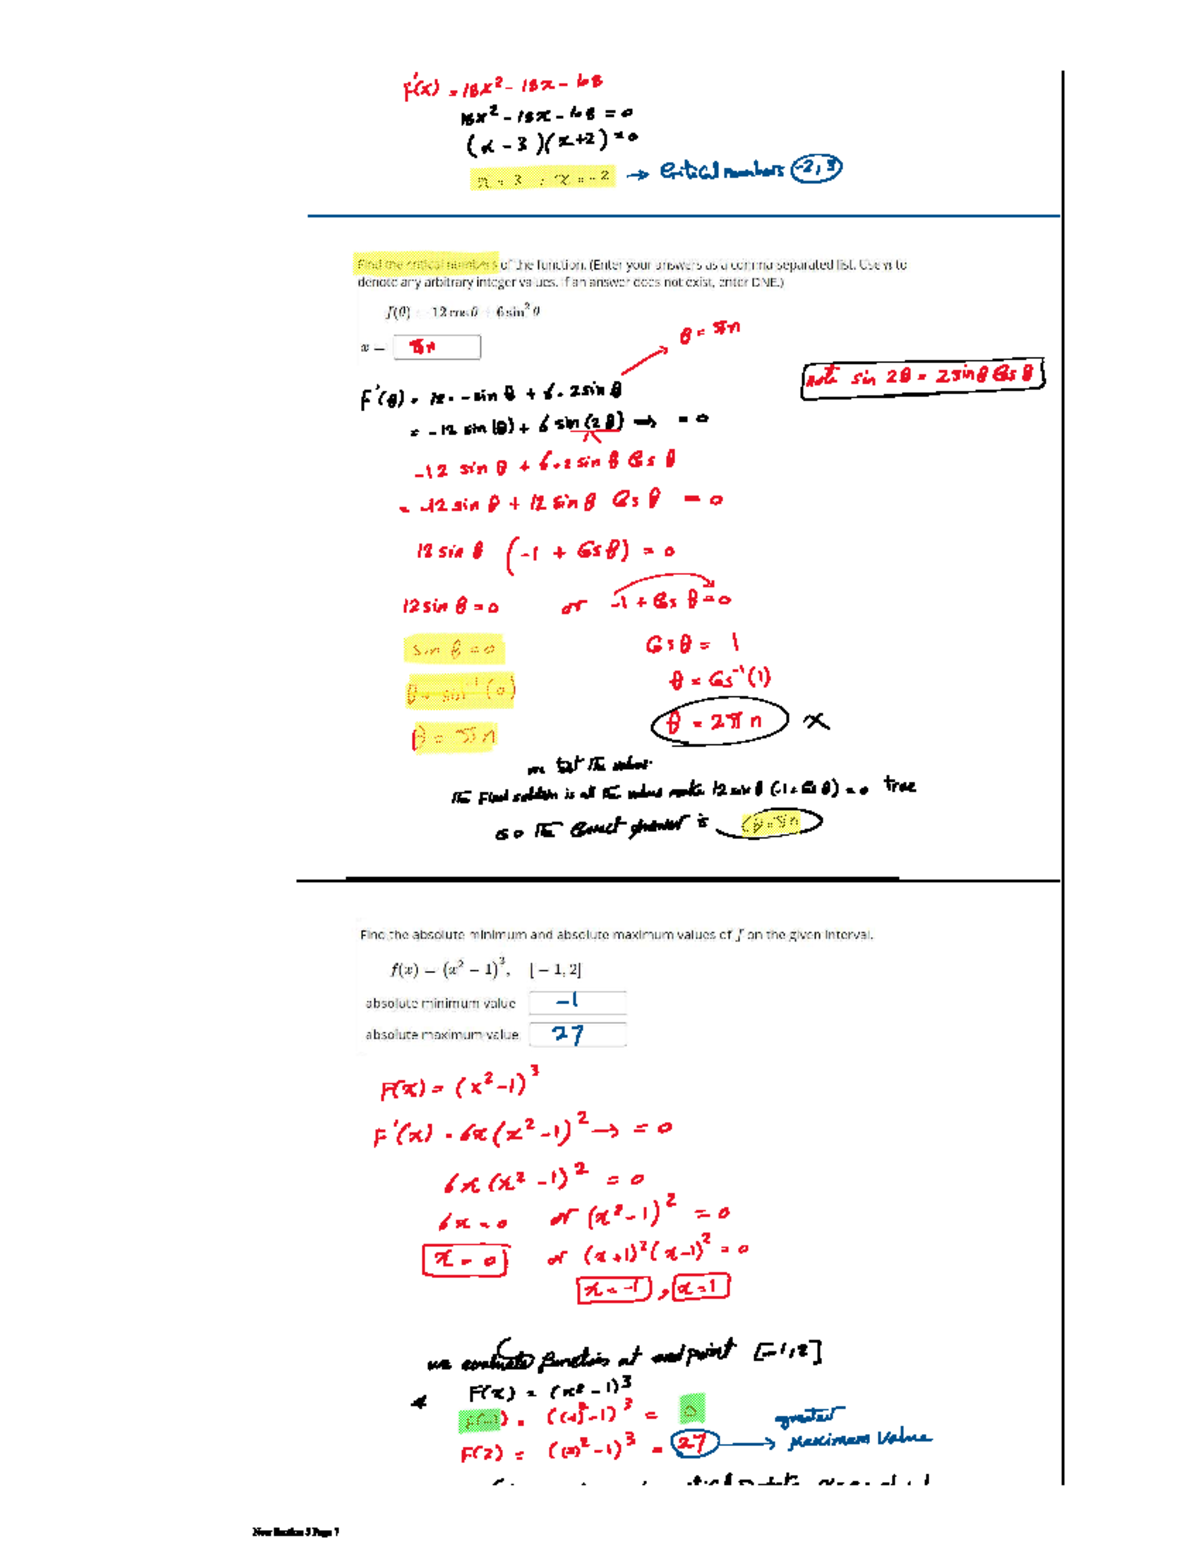 F'(x) = 18x² - 18x - 108
18x² - 18x - 108 = 0
(x - 3)(x + 2) = 0
x = 3 , x = -2 → Critical numbers -2, 3
Find the critical numbers of the function. (Enter your answers as a comma-separated list. Use n to
denote any arbitrary integer values. If an answer does not exist, enter DNE.)
f(θ) = 12 cos θ + 6 sin² θ
x = πn
θ = πn
note sin 2θ = 2 sin θ Cos θ
F'(θ) = 12 · - sin θ + 6 · 2 sin θ
= -12 sin (θ) + 6 sin (2θ) → = 0
-12 sin θ + 6·2 sin θ Cos θ
= -12 sin θ + 12 sin θ Cos θ = 0
12 sin θ (-1 + Cos θ) = 0
12 sin θ = 0 or -1 + Cos θ = 0
sin θ = 0 Cos θ = 1
θ = sin⁻¹(0) θ = Cos⁻¹(1)
θ = πn θ = 2πn x
we test the value.
The Final solution is all the values make 12 sin θ (-1 + Cos θ) = 0 true
so the Correct answer is θ = πn
Find the absolute minimum and absolute maximum values of f on the given interval.
f(x) = (x² - 1)³, [-1, 2]
absolute minimum value -1
absolute maximum value 27
F(x) = (x² - 1)³
F'(x) = 6x(x² - 1)² → = 0
6x(x² - 1)² = 0
6x = 0 or (x² - 1)² = 0
x = 0 or (x + 1)²(x - 1)² = 0
x = -1 , x = 1
we evaluate function at end point [-1, 2]
* F(x) = (x² - 1)³
F(-1) = ((-1)² - 1)³ = 0
greater
F(2) = ((2)² - 1)³ = 27 → Maximum Value
New Section 3 Page 7